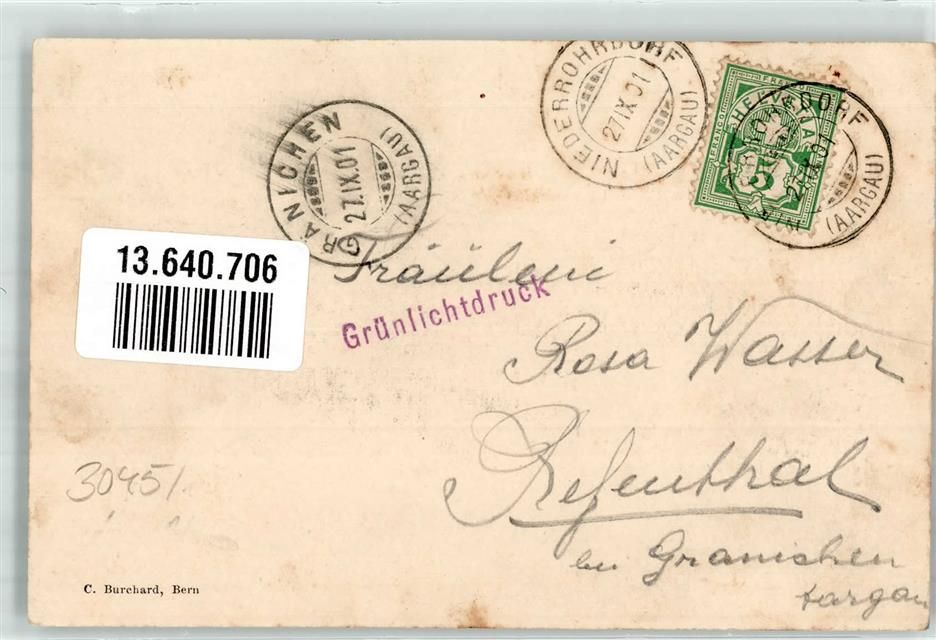 NIEDERROHRDORF
27.IX.01
(AARGAU)
FRANCO
HELVETIA
5
DORF
27.IX.01
(AARGAU)
GRANICHEN
27.IX.01
(AARGAU)
13.640.706
Fräulein
Grünlichtdruck
Rosa Wasser
Refenthal
bei Granichen
Aargau
30451
C. Burchard, Bern